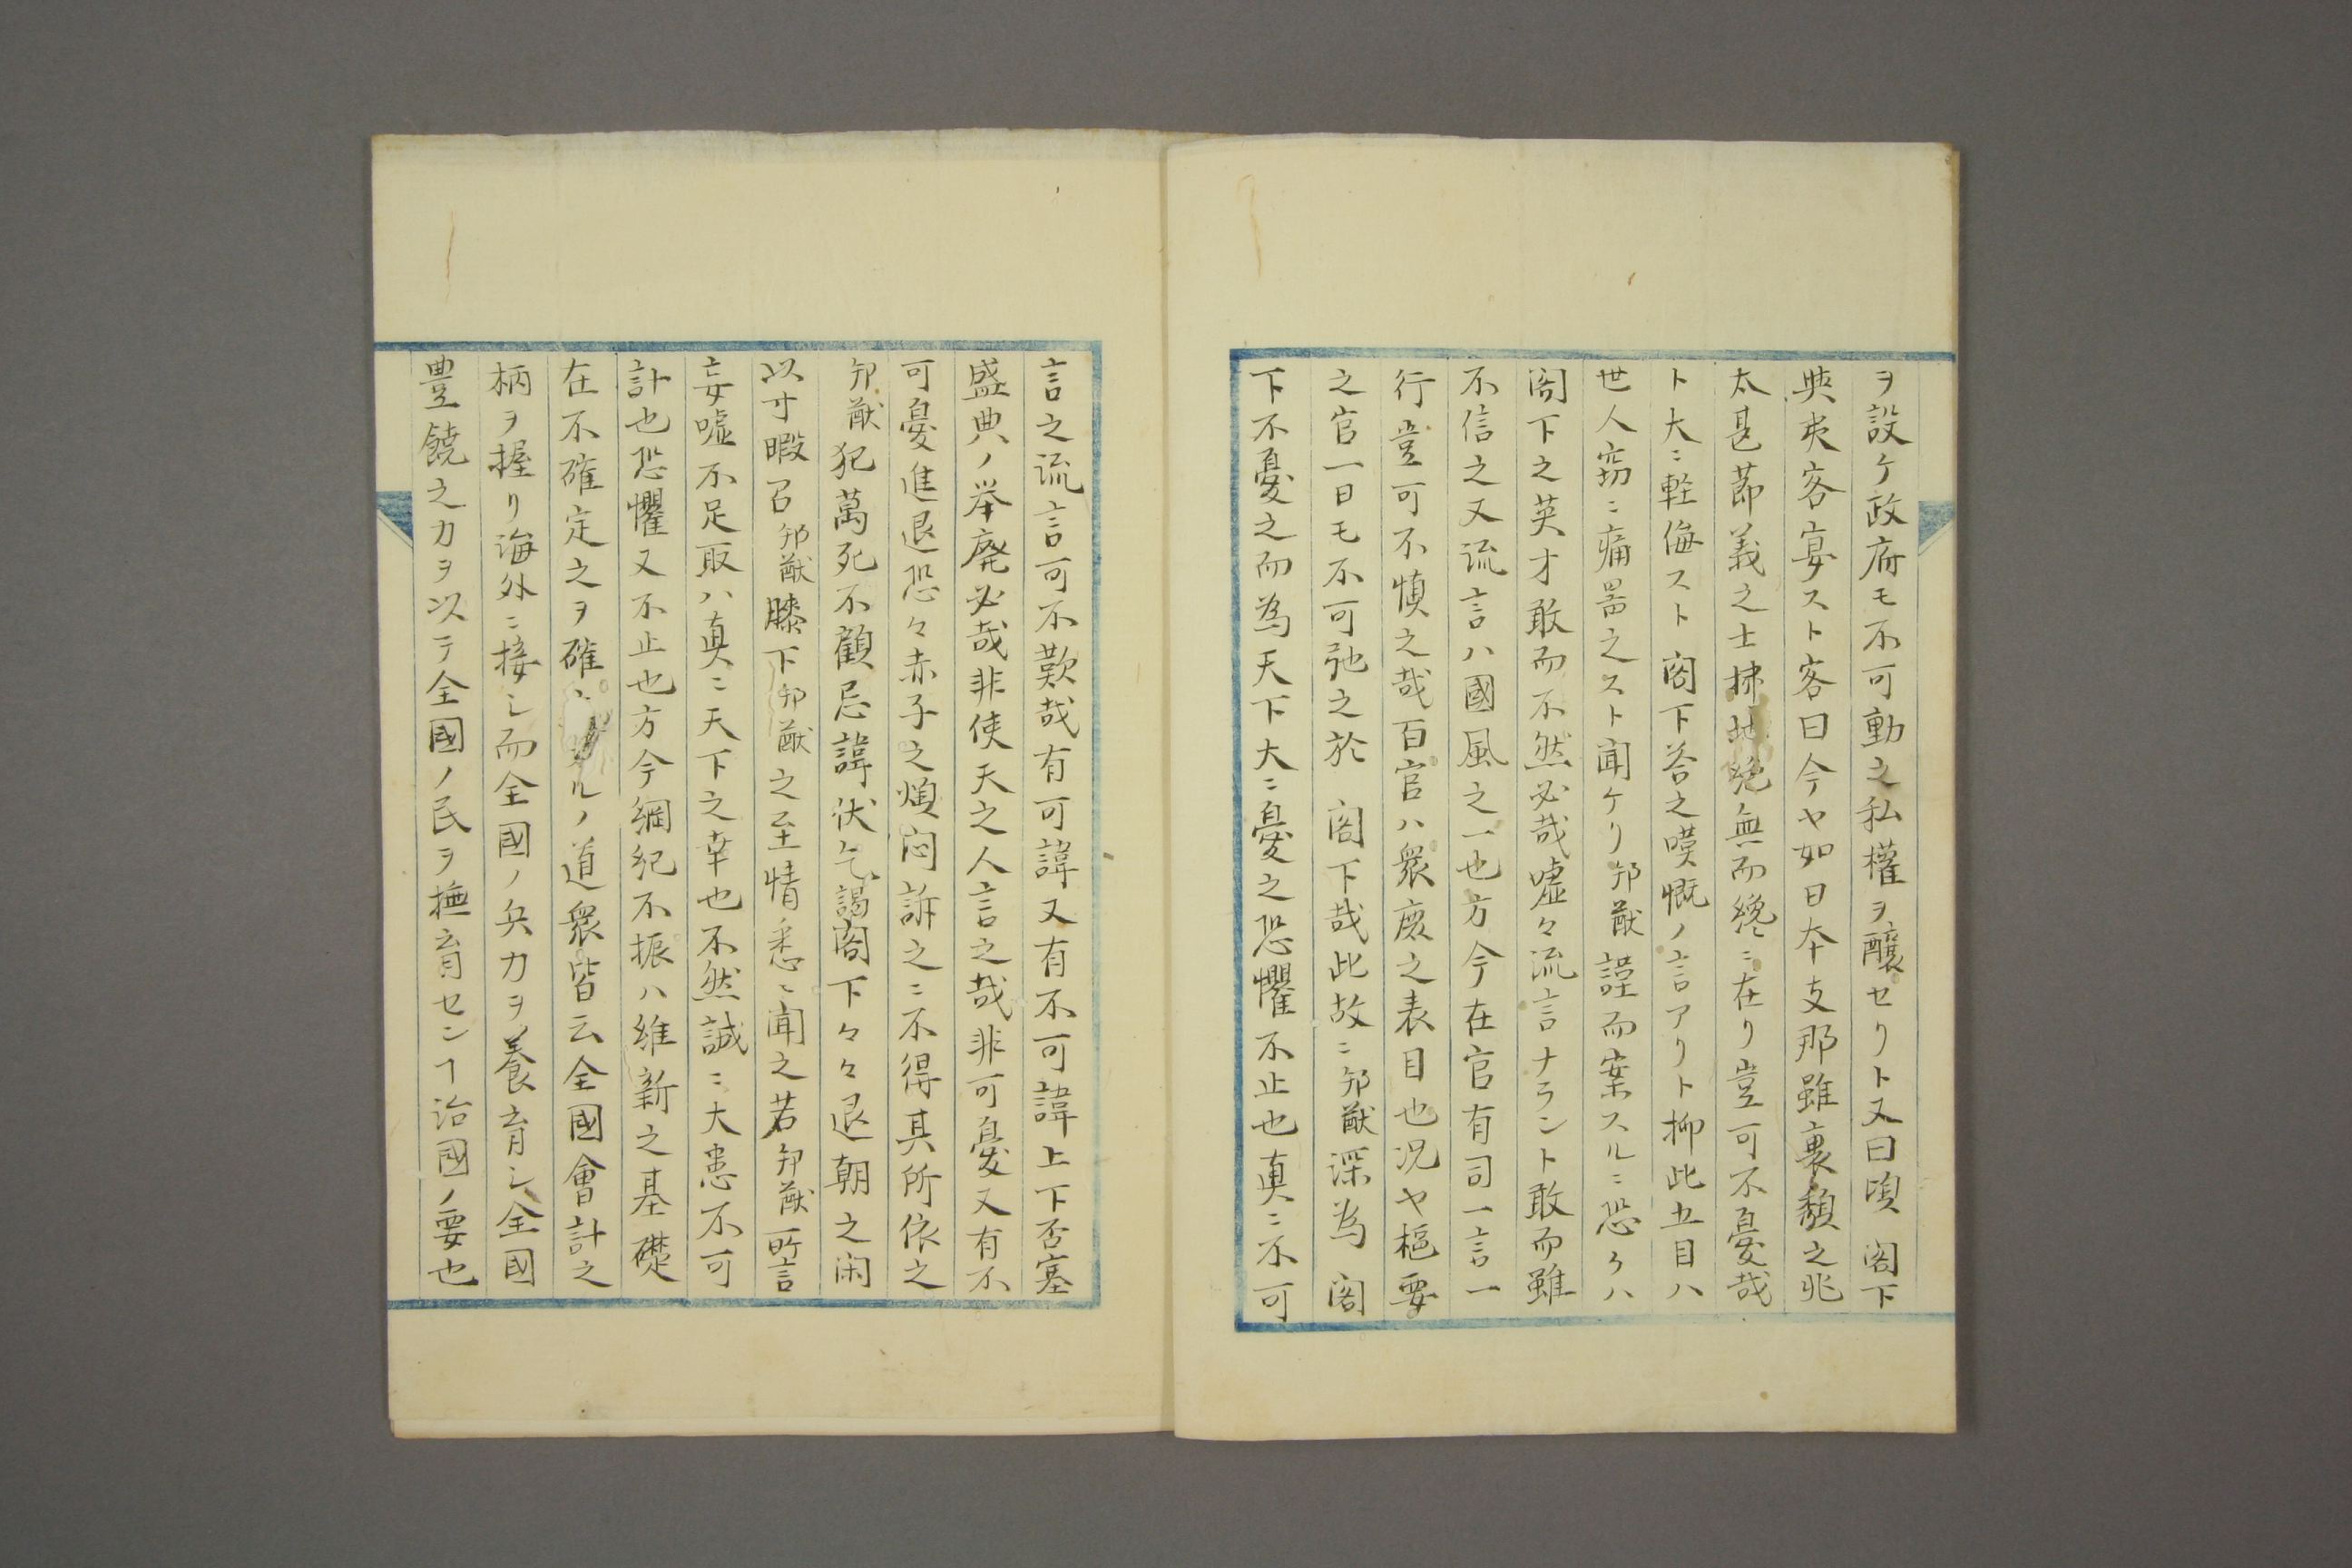 ヲ設ケ政府モ不可動之私權ヲ釀セリト又曰頃　閣下
與夷客宴スト客曰今ヤ如日本支那雖裏頽之兆
太甚莭義之士拂地絶無而纔ニ在リ豈可不憂哉
ト大ニ軽侮スト　閣下答之嘆慨ノ言アリト抑此五目ハ
世人窃ニ痛詈之スト聞ケリ邦猷謹而案スルニ恐クハ
閣下之英才敢而不然必哉嘘々流言ナラント敢而雖
不信之又流言ハ國風之一也方今在官有司一言一
行豈可不慎之哉百官ハ衆庻之表目也况ヤ樞要
之官一日モ不可弛之於　閣下哉此故ニ邦猷深為　閣
下不憂之而為天下大ニ憂之恐懼不止也真ニ不可
言之流言可不歎哉有可諱又有不可諱上下否塞
盛典ノ举廃必哉非使天之人言之哉非可憂又有不
可憂進退恐々赤子之煩悶訴之ニ不得其所依之
邦猷犯萬死不顧忌諱伏乞謁閣下々々退朝之闲
以寸暇召邦猷膝下邦猷之至情悉ニ聞之若邦猷所言
妄嘘不足取ハ真ニ天下之幸也不然誠ニ大患不可
計也恐懼又不止也方今綱紀不振ハ維新之基礎
在不確定之ヲ確ルノ道衆皆云全國會計之
柄ヲ握リ海外ニ接シ而全國ノ兵力ヲ養育シ全國
豊饒之力ヲ以テ全國ノ民ヲ撫育センヿ治國ノ要也